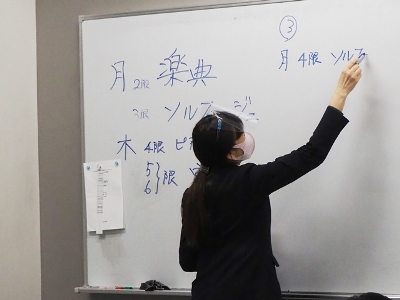 月 2限 楽典
3限 ソルフ
木 4限 ピ
5
6
限
③
月 4限 ソルフ